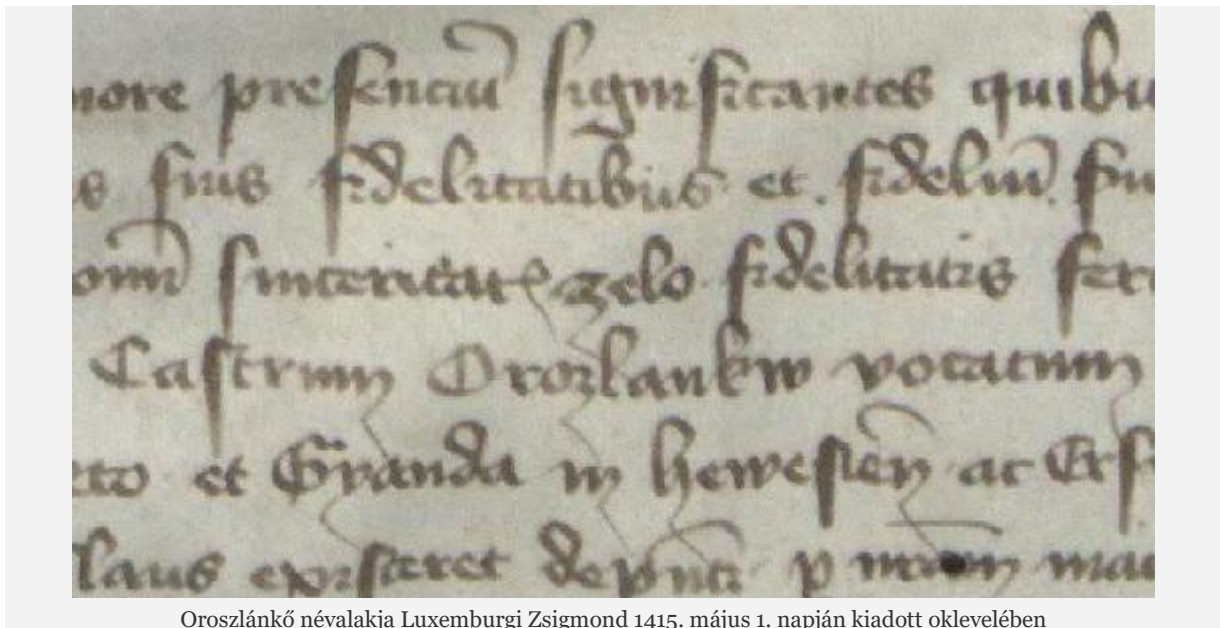 more presenciu significantes quibu
s suis fidelitatibus et fideliu su
sinceritat zelo fidelitatis fer
Castrum Ororlankw vocatum
et Granda in hewesien ac Ers
laus existeret
Oroszlánkő névalakja Luxemburgi Zsigmond 1415. május 1. napján kiadott oklevelében